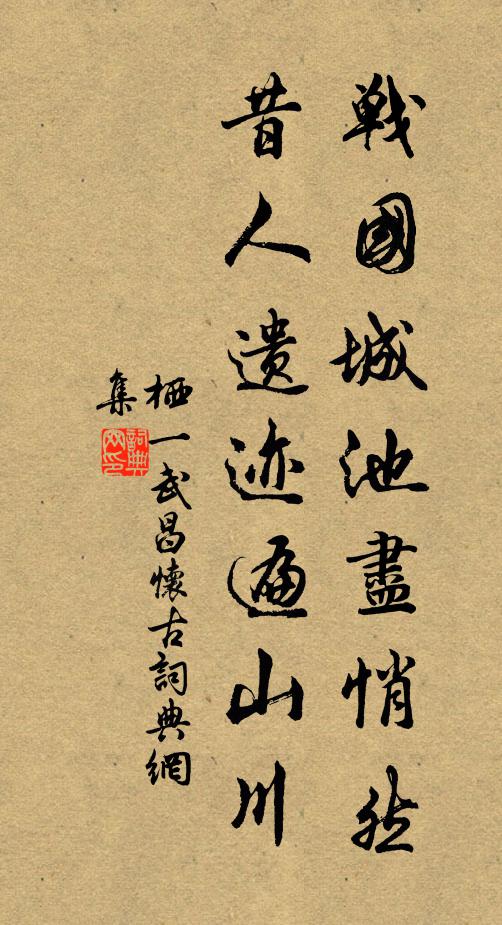 戰國城池盡悄然
昔人遺迹遍山川
栖一武昌懷古詞典網
集
詞典
网印